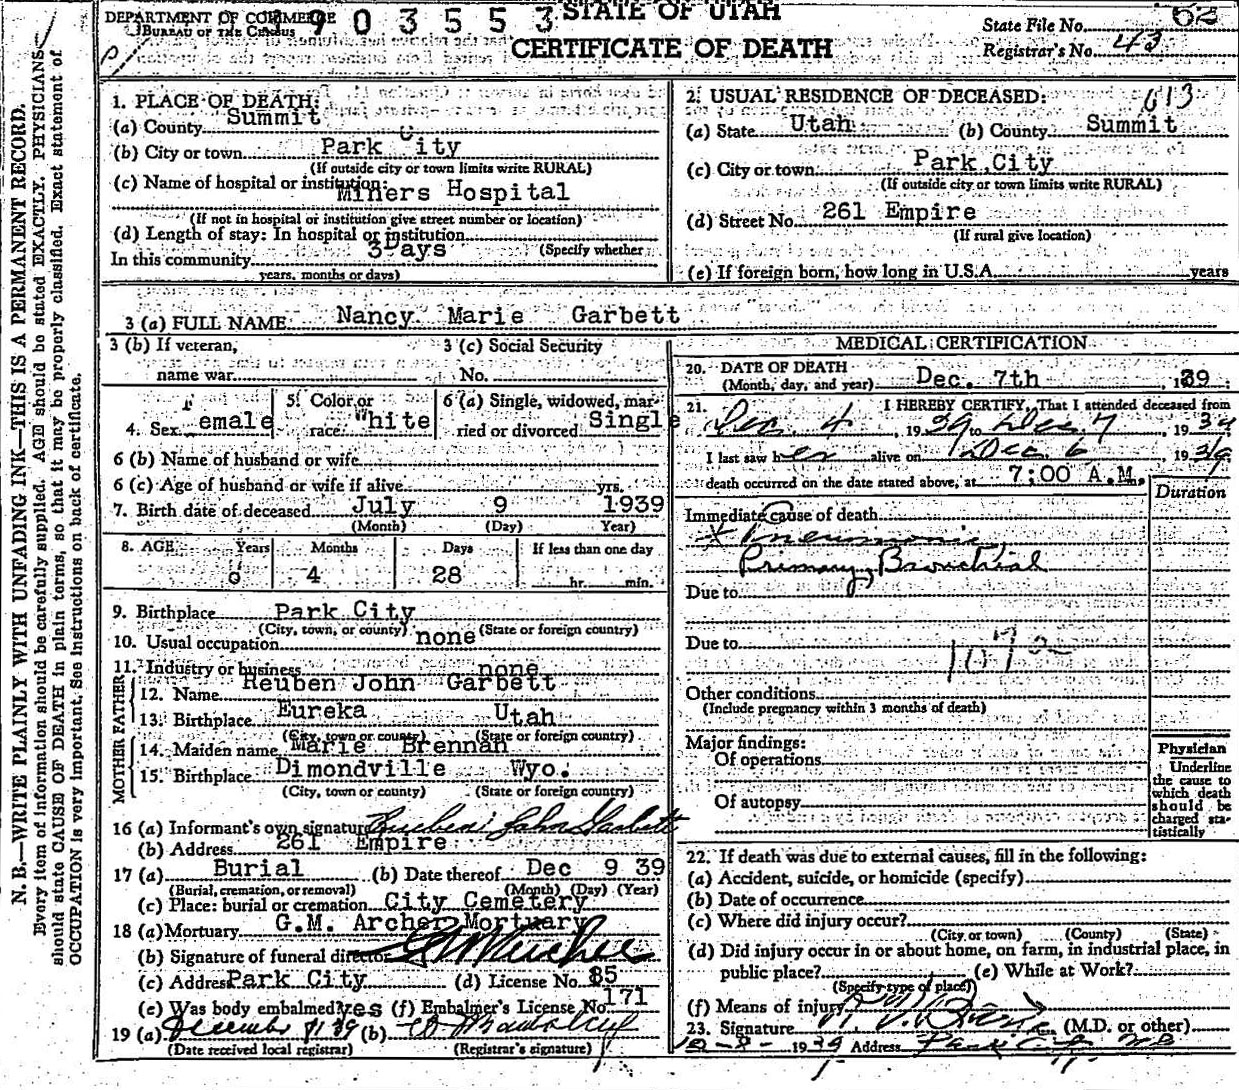 N. B.—WRITE PLAINLY WTH UNFADING INK—THIS IS A PERMANENT RECORD.
Every item of information should be carefully supplied. AGE should be stated EXACTLY. PHYSICIANS
should state CAUSE OF DEATH in plain terms, so that it may be properly classified. Exact statement of
OCCUPATION is very important. See instructions on back of certificate.
DEPARTMENT OF COMMERCE
BUREAU OF THE CENSUS
903553
STATE OF UTAH
CERTIFICATE OF DEATH
State File No. 62
Registrar's No. 43
1. PLACE OF DEATH:
(a) County Summit
(b) City or town Park City
(If outside city or town limits write RURAL)
(c) Name of hospital or institution: Miners Hospital
(If not in hospital or institution give street number or location)
(d) Length of stay: In hospital or institution
3Days (Specify whether
In this community
years, months or days)
2. USUAL RESIDENCE OF DECEASED: 613
(a) State Utah (b) County Summit
(c) City or town Park City
(If outside city or town limits write RURAL)
(d) Street No. 261 Empire
(If rural give location)
(e) If foreign born, how long in U.S.A. years
3 (a) FULL NAME Nancy Marie Garbett
3 (b) If veteran, name war
3 (c) Social Security No.
4. Sex Female
5. Color or race White
6 (a) Single, widowed, married or divorced Single
6 (b) Name of husband or wife
6 (c) Age of husband or wife if alive yrs.
7. Birth date of deceased July 9 1939
(Month) (Day) Year)
8. AGE Years Months Days If less than one day
0 4 28 hr. min.
9. Birthplace Park City
(City, town, or county) (State or foreign country)
10. Usual occupation none
11. Industry or business none
FATHER
12. Name Reuben John Garbett
13. Birthplace Eureka Utah
(City, town or county) (State or foreign country)
MOTHER
14. Maiden name Marie Brennan
15. Birthplace Dimondville Wyo.
(City, town or county) (State or foreign country)
16 (a) Informant's own signature Reuben John Garbett
(b) Address 261 Empire
17 (a) Burial (b) Date thereof Dec 9 39
(Burial, cremation, or removal) (Month) (Day) (Year)
(c) Place: burial or cremation City Cemetery
18 (a) Mortuary G.M. Archer Mortuary
(b) Signature of funeral director GM Archer
(c) Address Park City (d) License No. 85
(e) Was body embalmed? yes (f) Embalmer's License No. 171
19 (a) December 8/39 (b)
(Date received local registrar) (Registrar's signature)
MEDICAL CERTIFICATION
20. DATE OF DEATH
(Month, day, and year) Dec. 7th, 1939
21. I HEREBY CERTIFY, That I attended deceased from
Dec. 4, 1939 to Dec. 7, 1939
I last saw her alive on Dec 6, 1939
death occurred on the date stated above, at 7:00 A.M.
Duration
Immediate cause of death
Pneumonia
Primary, Bronchial
Due to
Due to
107
Other conditions
(Include pregnancy within 3 months of death)
Major findings:
Of operations
Of autopsy
Physician
Underline
the cause to
which death
should be
charged sta-
tistically
22. If death was due to external causes, fill in the following:
(a) Accident, suicide, or homicide (specify)
(b) Date of occurrence
(c) Where did injury occur?
(City or town) (County) (State)
(d) Did injury occur in or about home, on farm, in industrial place, in
public place? (e) While at Work?
(Specify type of place)
(f) Means of injury
23. Signature (M.D. or other)
12-8-1939 Address Park City